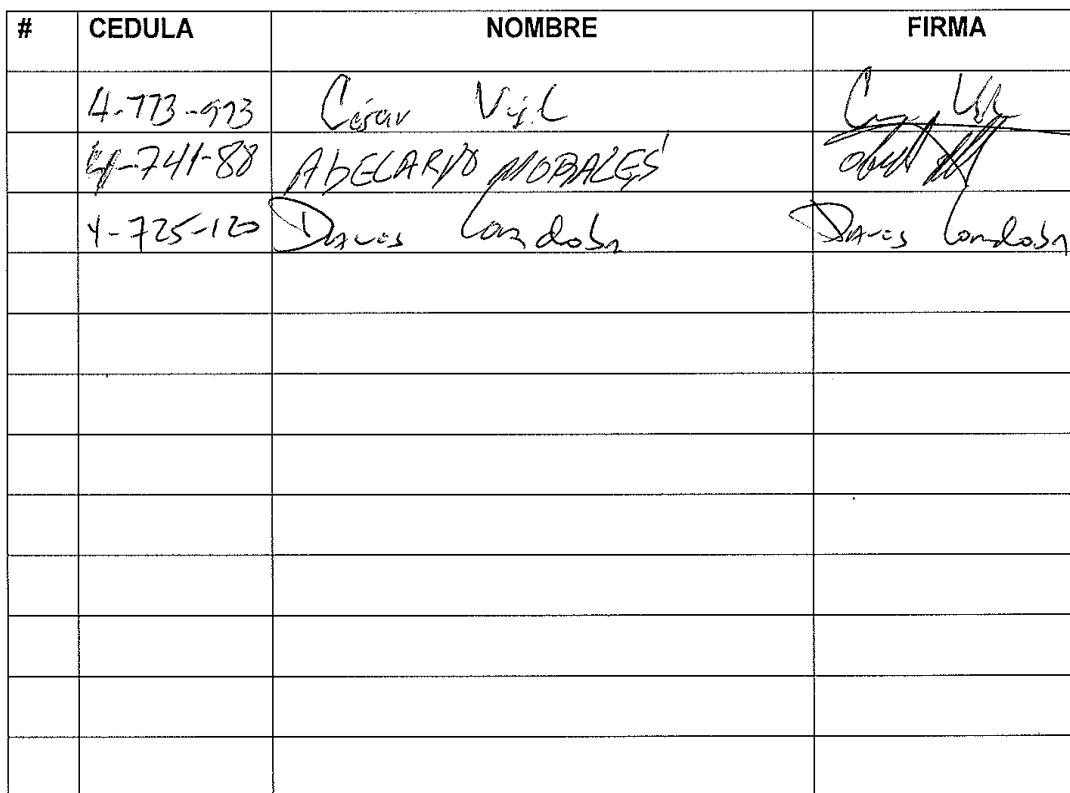 # CEDULA NOMBRE FIRMA
4-773-973 César Vigil
4-741-88 ABELARDO MORALES
4-725-120 Cordoba Cordoba